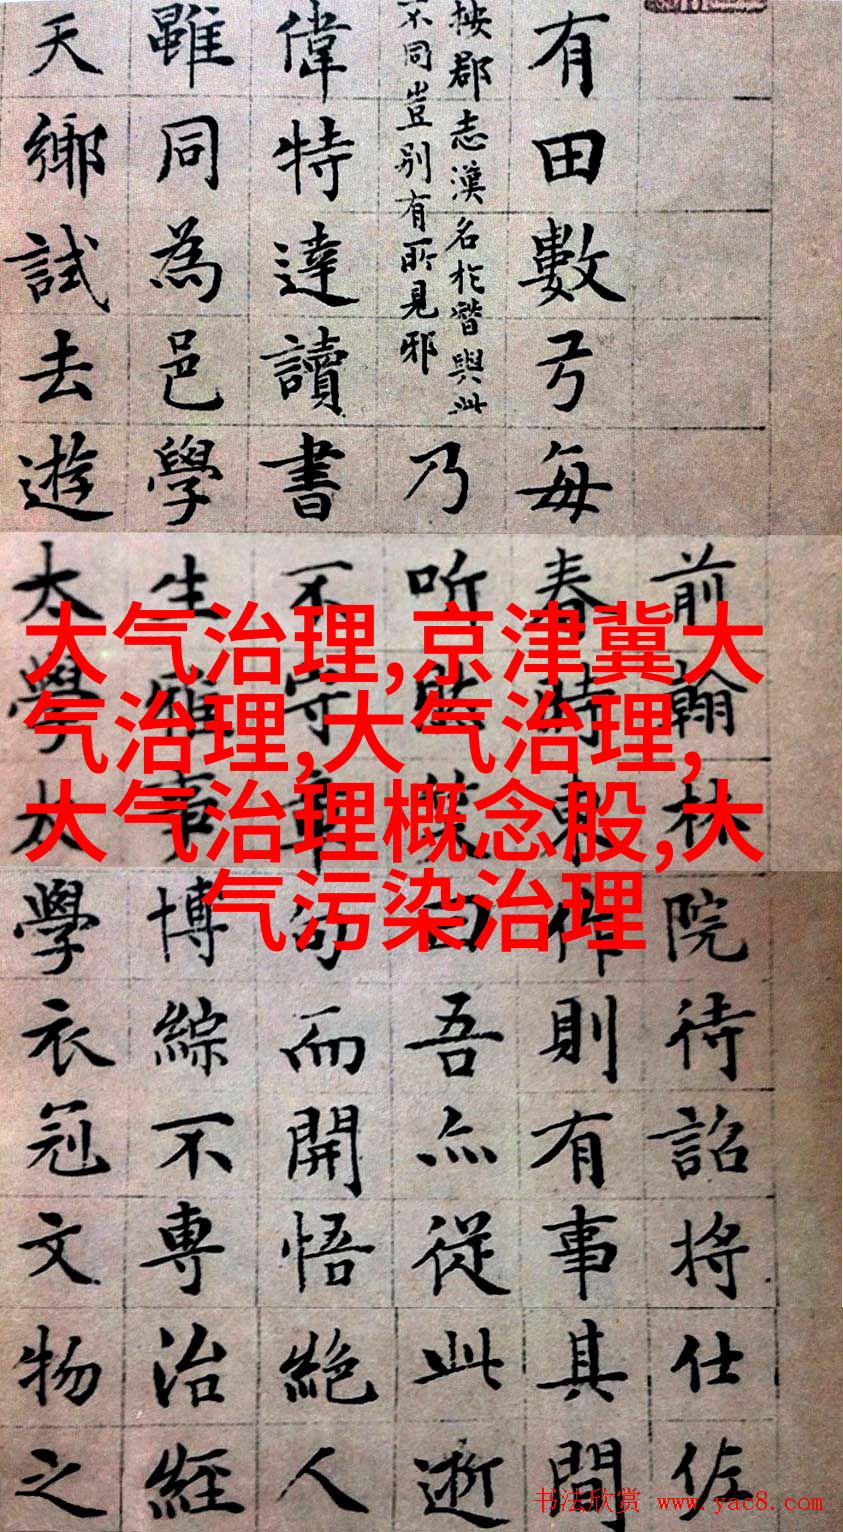 大气治理,京津冀大
气治理,大气治理,
大气治理概念股,大
气污染治理
前翰林院待詔将仕佐
有田數亐每春時東作則有事其間
按郡志漢名於與此
不同豈别有所見邪
乃听然笑曰吾亦從此逝
偉特達讀書不守章句而開悟絶人
雖同為邑學生博綜不専治經
天鄉試去遊太學太學衣冠文物之
书法欣赏 www.yac8.com